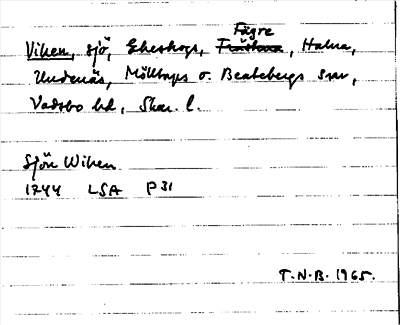 Viken, sjö, Ekeskogs, Fägre, Halna,
Undenäs, Mölltorps o. Beatebergs snr,
Vadsbo hd, Skar. l.
Sjön Wiken
1744 LSA P31
T.N.B. 1965.